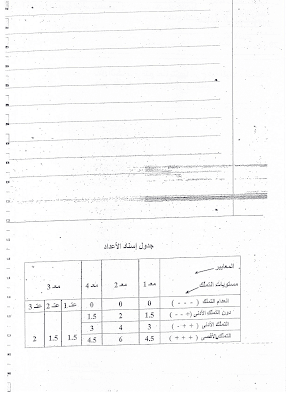 جدول إسناد الأعداد
المعايير
مستويات التملك
معـ 1 معـ 2 معـ 4 معـ 3
انعدام التملك ( - - - ) 0 0 0 عنـ 1 عنـ 2 عنـ 3
دون التملك الأدنى (+ - -) 1.5 2 1.5
التملك الأدنى ( + + - ) 3 4 3
التملك الأقصى ( + + + ) 4.5 6 4.5 1.5 1.5 2